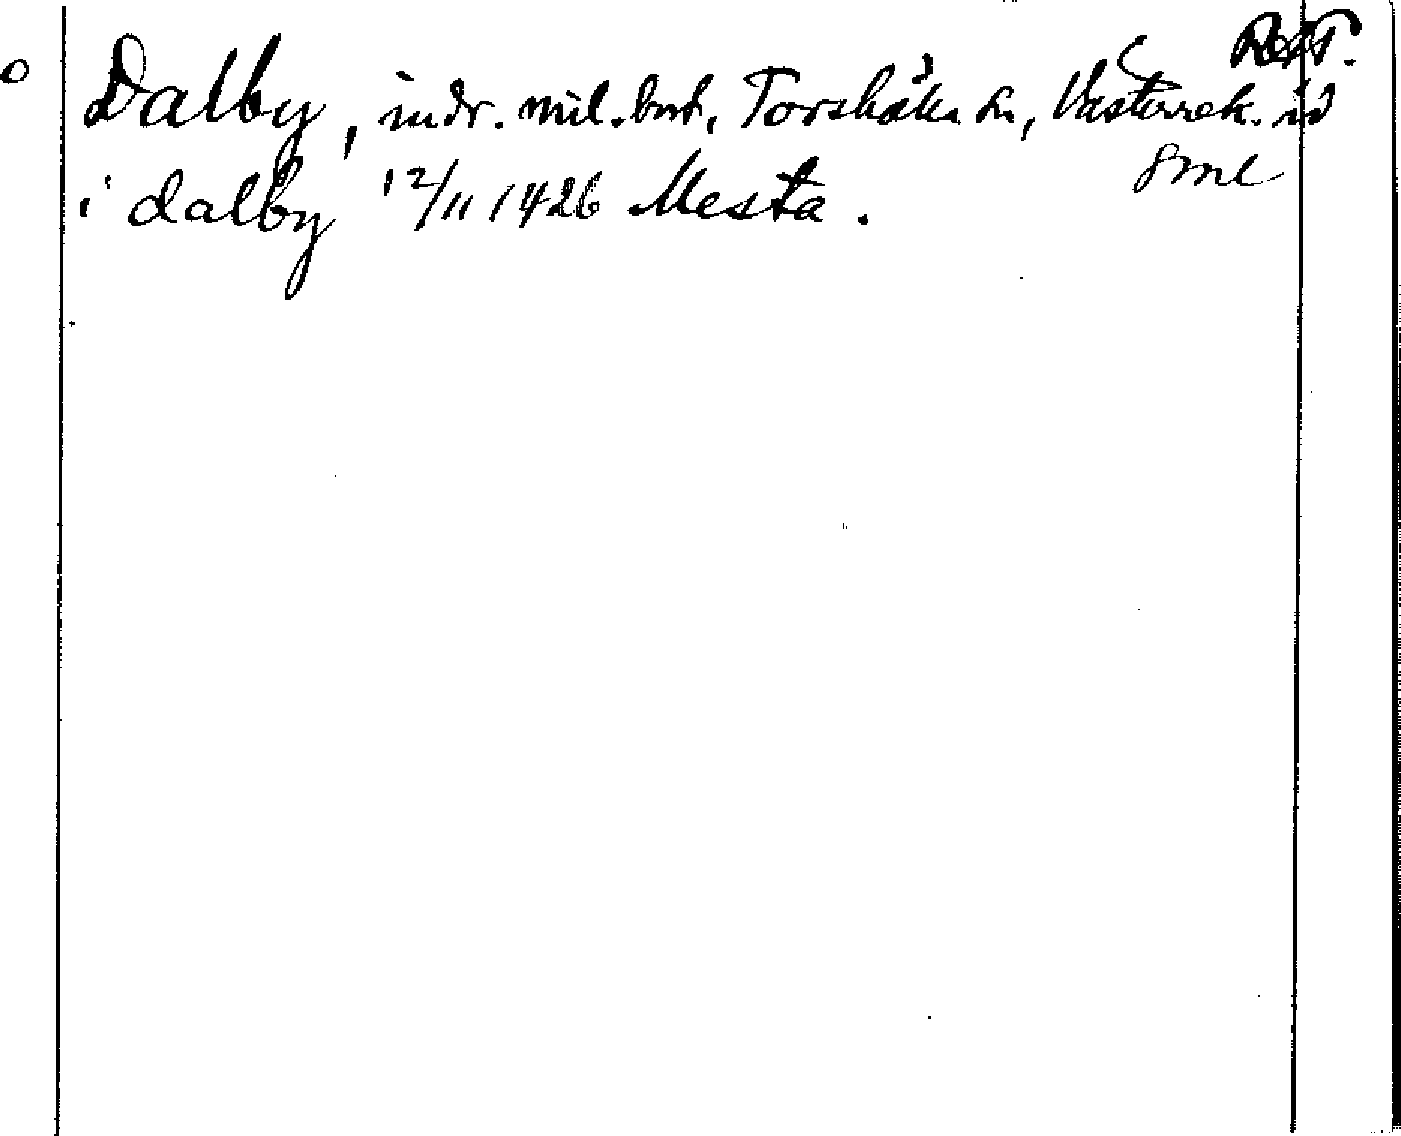 Dalby, indr. mil. bost. Torshälla ln, Västerrek. id
Sml
i dalby 12/11 1426 Mesta.